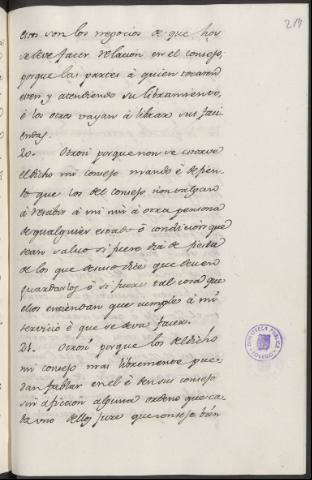 219
Estos son los negocios de que hoy
se deve facer relacion en el consejo,
porque las partes à quien tocaren
esten y atendiendo su libramiento,
è los otros vayan à librar sus faci
endas.
20. Otrosi porque non se estorve
el dicho mi consejo mando è defien
to que los del consejo non salgan
à resebir à mi nin à otra persona
de qualquier estado ò condicion que
sean salvo si fuere dia de fiesta
de los que desuso dice que deven
guardarlos ò si fuere tal cosa que
ellos entiendan que cumple à mi
servicio è que se deva facer.
21. Otrosi porque los del dicho
mi consejo mas libremente pue
dan fablar en el è den sus consejo
sin aficcion alguna ordeno que ca
da uno dellos jure que consejo bien
BIBLIOTECA PUBLICA
TOLEDO